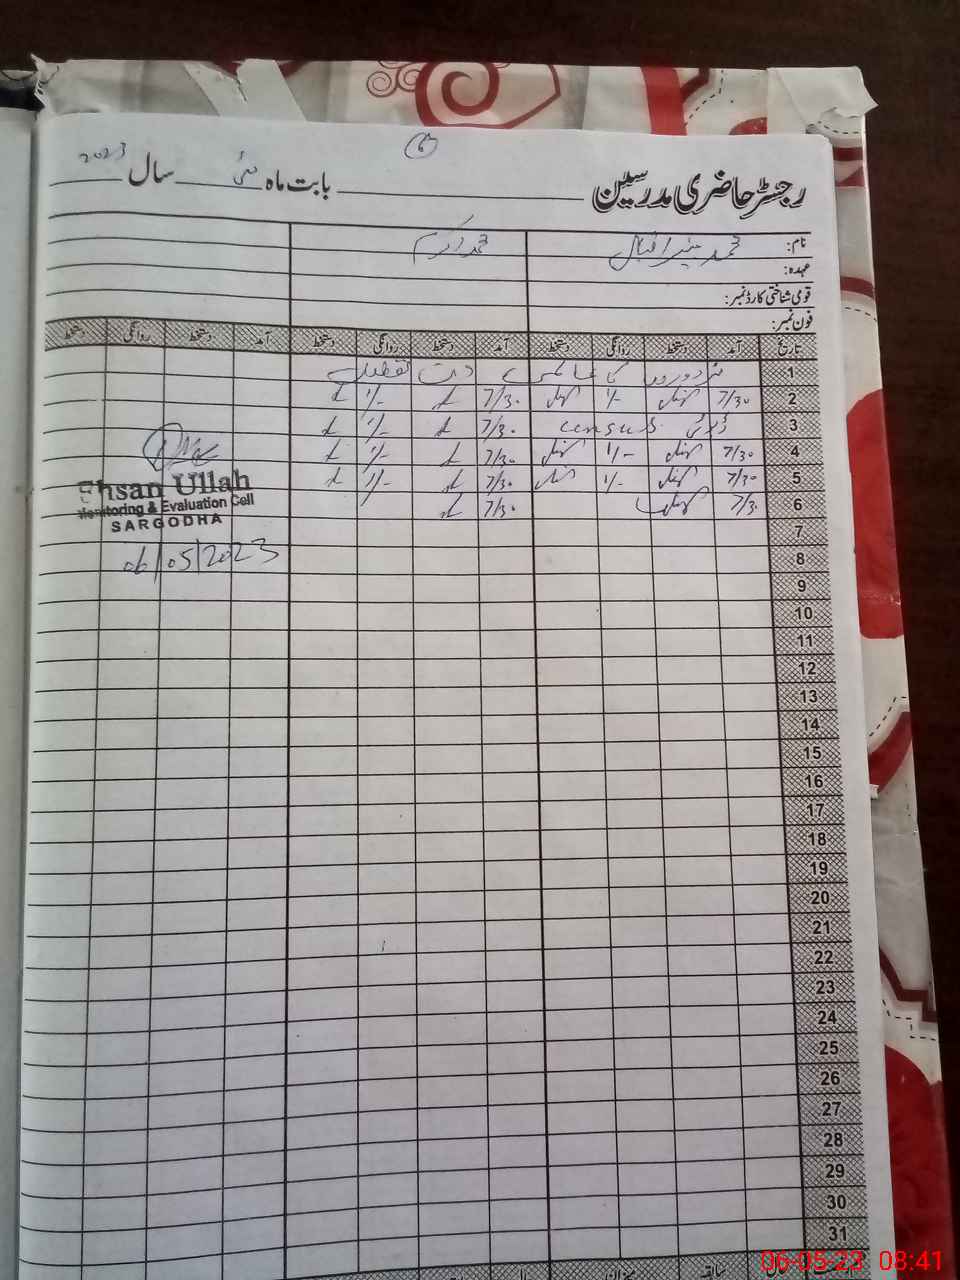 رجسٹر حاضری مدرسین بابت ماہ مئی سال 2023
نام: محمد اقبال محمد اکرم
عہدہ:
قومی شناختی کارڈ نمبر:
فون نمبر:
تاریخ آمد دستخط روانگی دستخط آمد دستخط روانگی دستخط آمد دستخط روانگی دستخط
1 مزدوروں کا عالمی دن تعطیل
2 7/30 1/- 7/30 1/-
3 ڈیوٹی census 7/30 1/-
4 7/30 1/- 7/30 1/-
5 7/30 1/- 7/30 1/-
6 7/30 7/30
Ehsan Ullah
Monitoring & Evaluation Cell
SARGODHA
06/05/2023
7
8
9
10
11
12
13
14
15
16
17
18
19
20
21
22
23
24
25
26
27
28
29
30
31
06-05-23 08:41